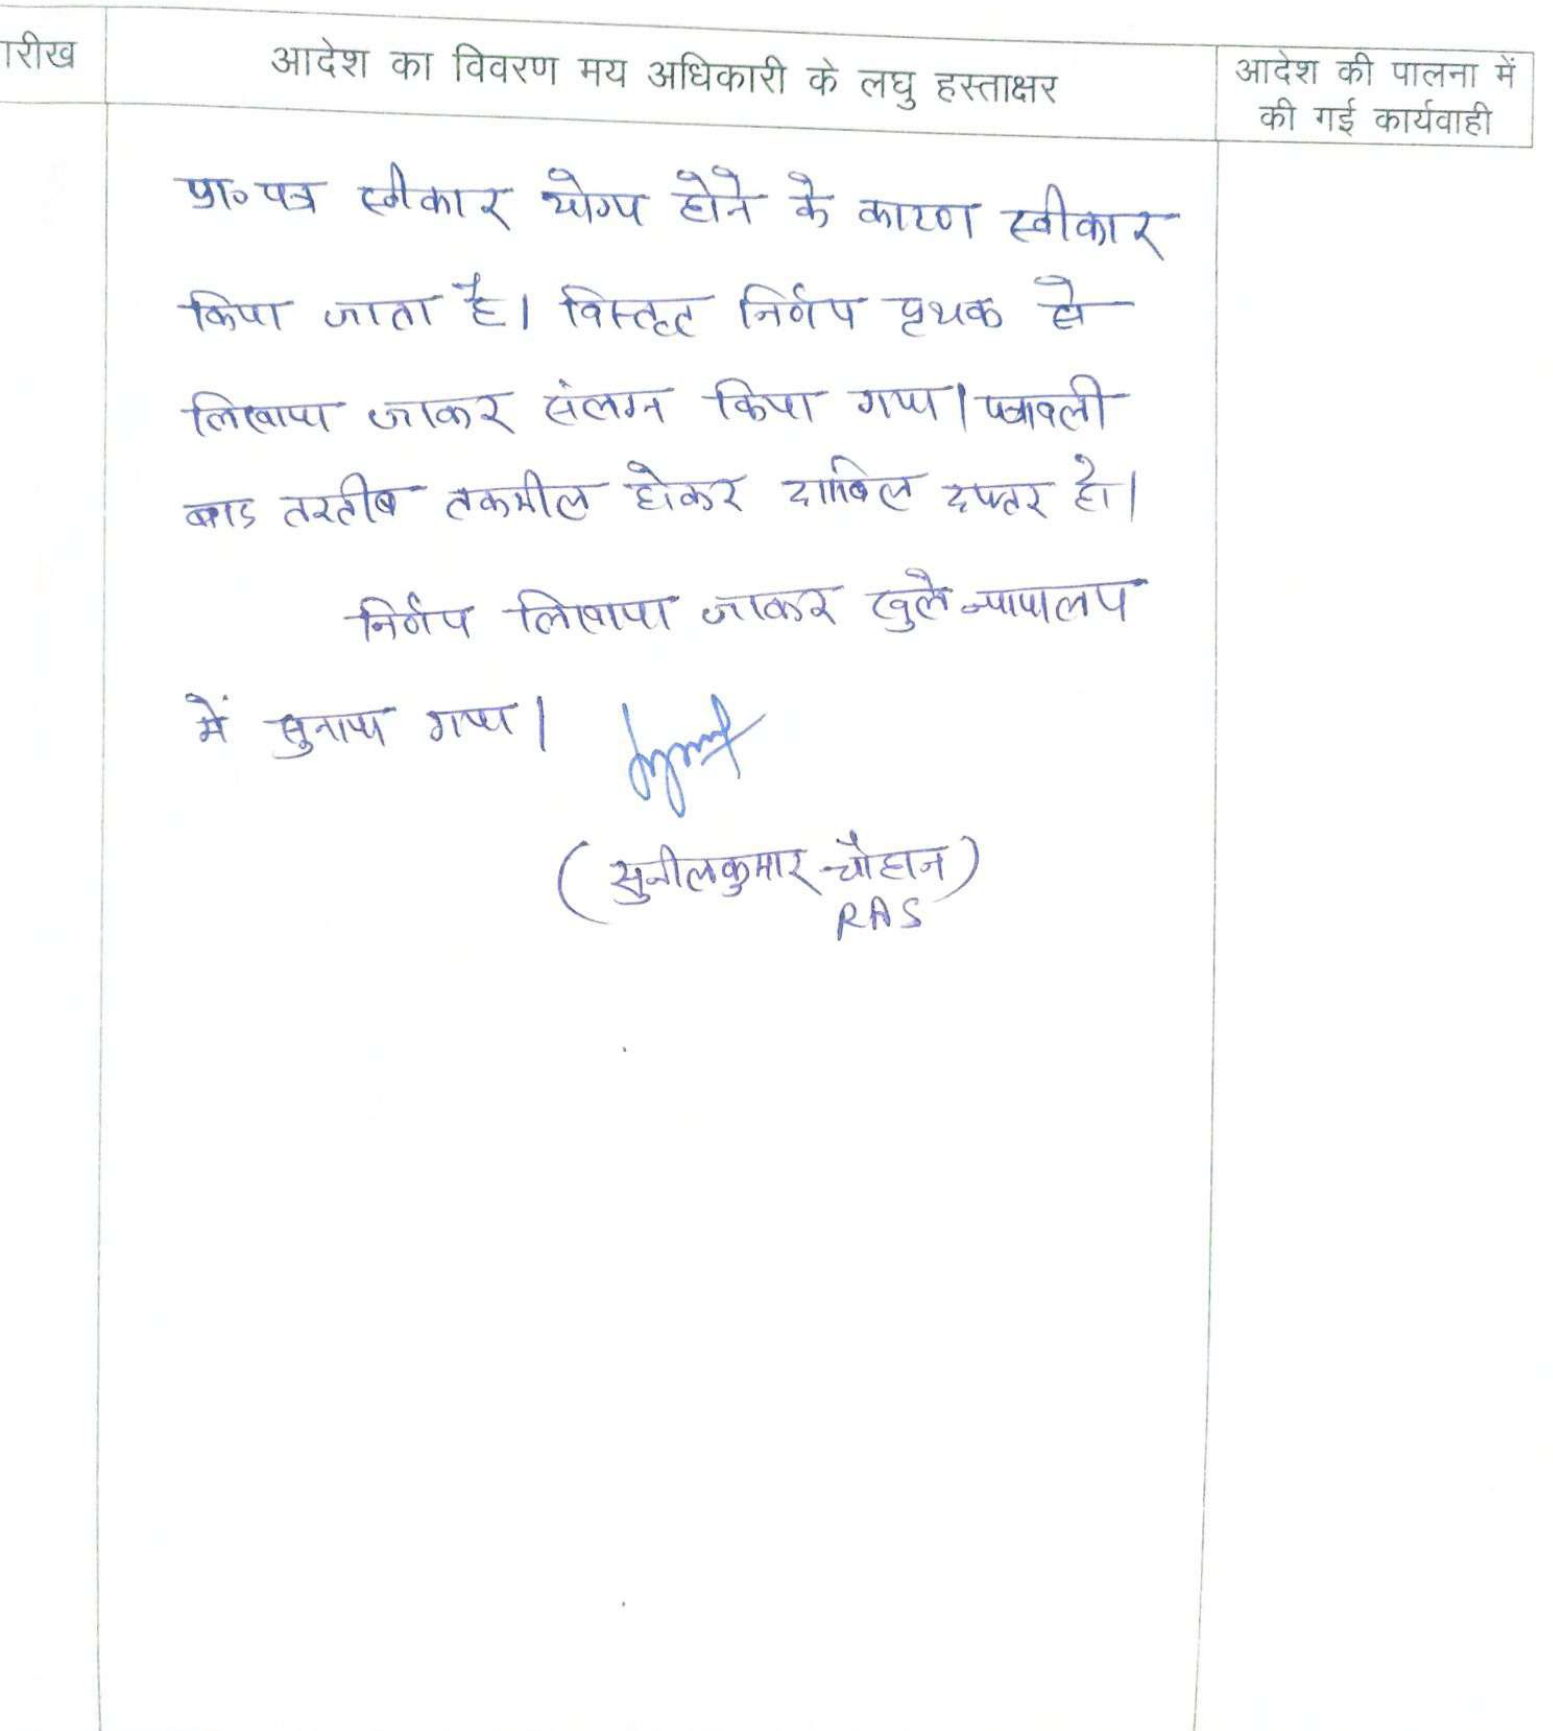 ारीख
आदेश का विवरण मय अधिकारी के लघु हस्ताक्षर
आदेश की पालना में
की गई कार्यवाही
प्रा॰ पत्र स्वीकार योग्य होने के कारण स्वीकार
किया जाता है। विस्तृत निर्णय पृथक से
लिखाया जाकर संलग्न किया गया। पत्रावली
बाद तरतीब तकमील होकर दाखिल दफ्तर हो।
निर्णय लिखाया जाकर खुले न्यायालय
में सुनाया गया।
(सुनीलकुमार चौहान)
RAS